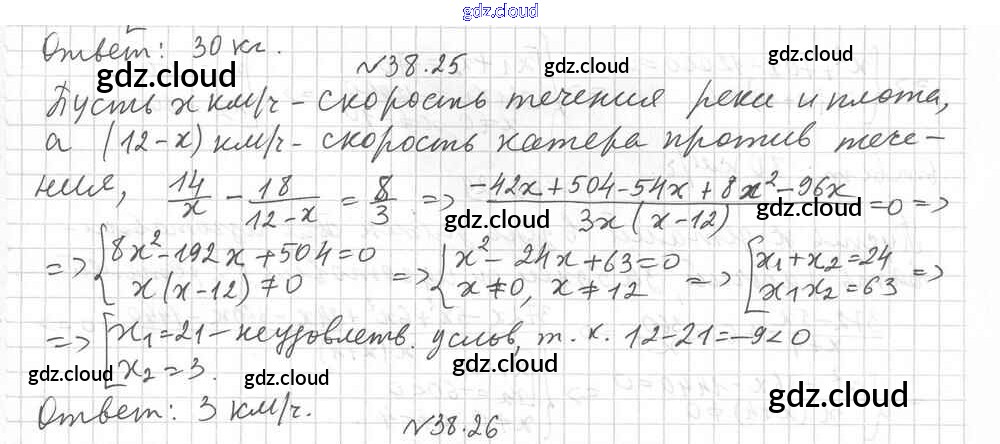 gdz.cloud
Ответ: 30 кг.
gdz.cloud
gdz.cloud
gdz.cloud
№38.25
Пусть x км/ч - скорость течения реки и плота,
а (12-x) км/ч - скорость катера против тече-
ния, 14/x - 18/(12-x) = 8/3 => (-42x+504-54x+8x²-96x)/(3x(x-12)) =0 =>
gdz.cloud
gdz.cloud
=> { 8x²-192x+504=0 => { x²-24x+63=0 => [ x₁+x₂=24 =>
x(x-12)≠0 x≠0, x≠12 x₁x₂=63
=> [ x₁=21 - неудовлетв. услов, т.к. 12-21=-9<0
x₂=3.
gdz.cloud
gdz.cloud
gdz.cloud
gdz.cloud
Ответ: 3 км/ч.
№38.26